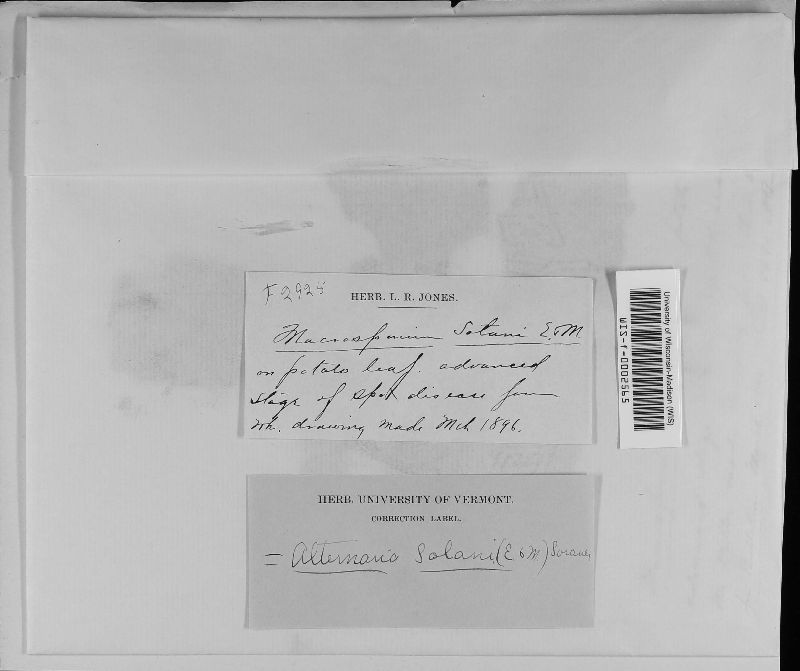 F2925
HERB. L. R. JONES.
Macrosporium Solani E&M
on potato leaf. advanced
stage of spot disease from
wh. drawing made Mch 1896.
University of Wisconsin-Madison (WIS)
WIS-f-0002565
HERB. UNIVERSITY OF VERMONT.
CORRECTION LABEL.
= Alternaria Solani (E & M) Sorauer